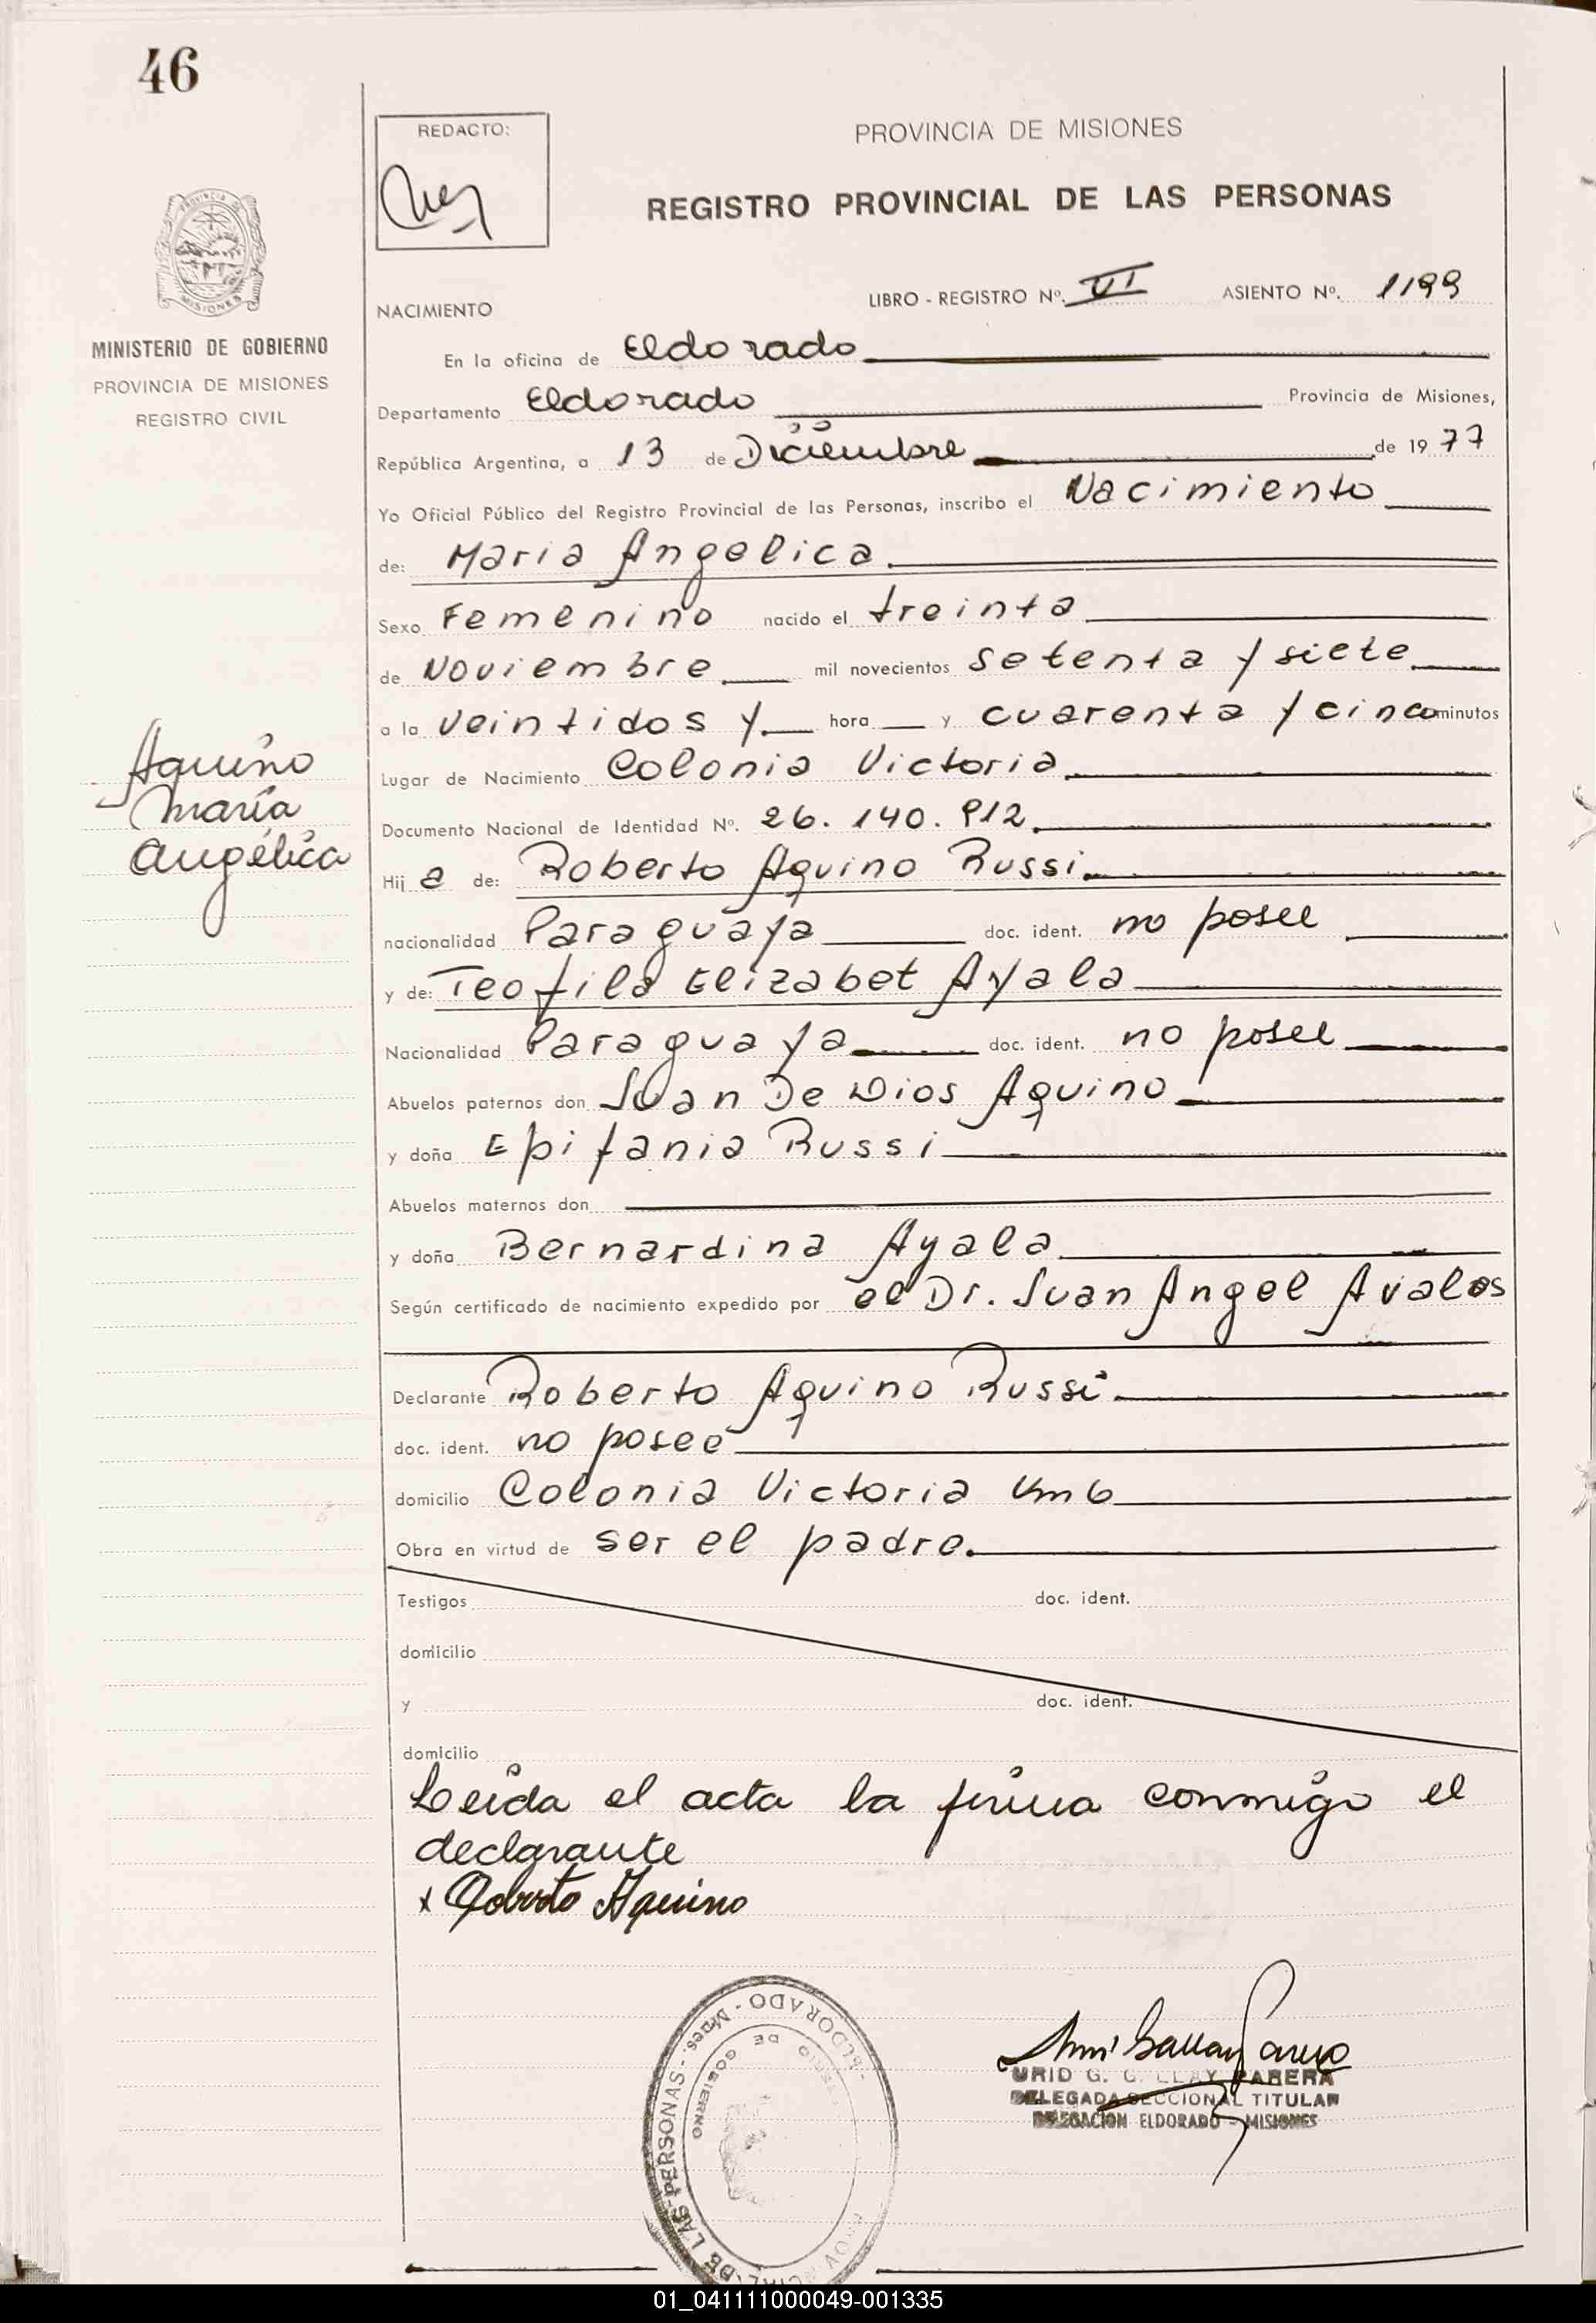 46
REDACTO:
PROVINCIA DE MISIONES
REGISTRO PROVINCIAL DE LAS PERSONAS
MINISTERIO DE GOBIERNO
PROVINCIA DE MISIONES
REGISTRO CIVIL
NACIMIENTO LIBRO - REGISTRO Nº. VI ASIENTO Nº. 1199
En la oficina de Eldorado
Departamento Eldorado Provincia de Misiones,
República Argentina, a 13 de Diciembre de 1977
Yo Oficial Público del Registro Provincial de las Personas, inscribo el Nacimiento
de: Maria Angelica
Sexo Femenino nacido el treinta
de Noviembre mil novecientos setenta y siete
a la veintidos y hora y cuarenta y cinco minutos
Aquino
María
Angélica
Lugar de Nacimiento Colonia Victoria
Documento Nacional de Identidad Nº. 26.140.912
Hij a de: Roberto Aquino Russi
nacionalidad Paraguaya doc. ident. no posee
y de: Teofila Elizabet Ayala
Nacionalidad Paraguaya doc. ident. no posee
Abuelos paternos don Juan De Dios Aquino
y doña Epifania Russi
Abuelos maternos don
y doña Bernardina Ayala
Según certificado de nacimiento expedido por el Dr. Juan Angel Avalos
Declarante Roberto Aquino Russi
doc. ident. no posee
domicilio Colonia Victoria Km 6
Obra en virtud de ser el padre.
Testigos doc. ident.
domicilio
y doc. ident.
domicilio
Leida el acta la firma conmigo el
declarante
x Roberto Aquino
ELDORADO - Mnes. - PERSONAS - DE LAS
DE GOBIERNO
G. PARERA
DELEGADA SECCIONAL TITULAR
DELEGACION ELDORADO - MISIONES
01_041111000049-001335